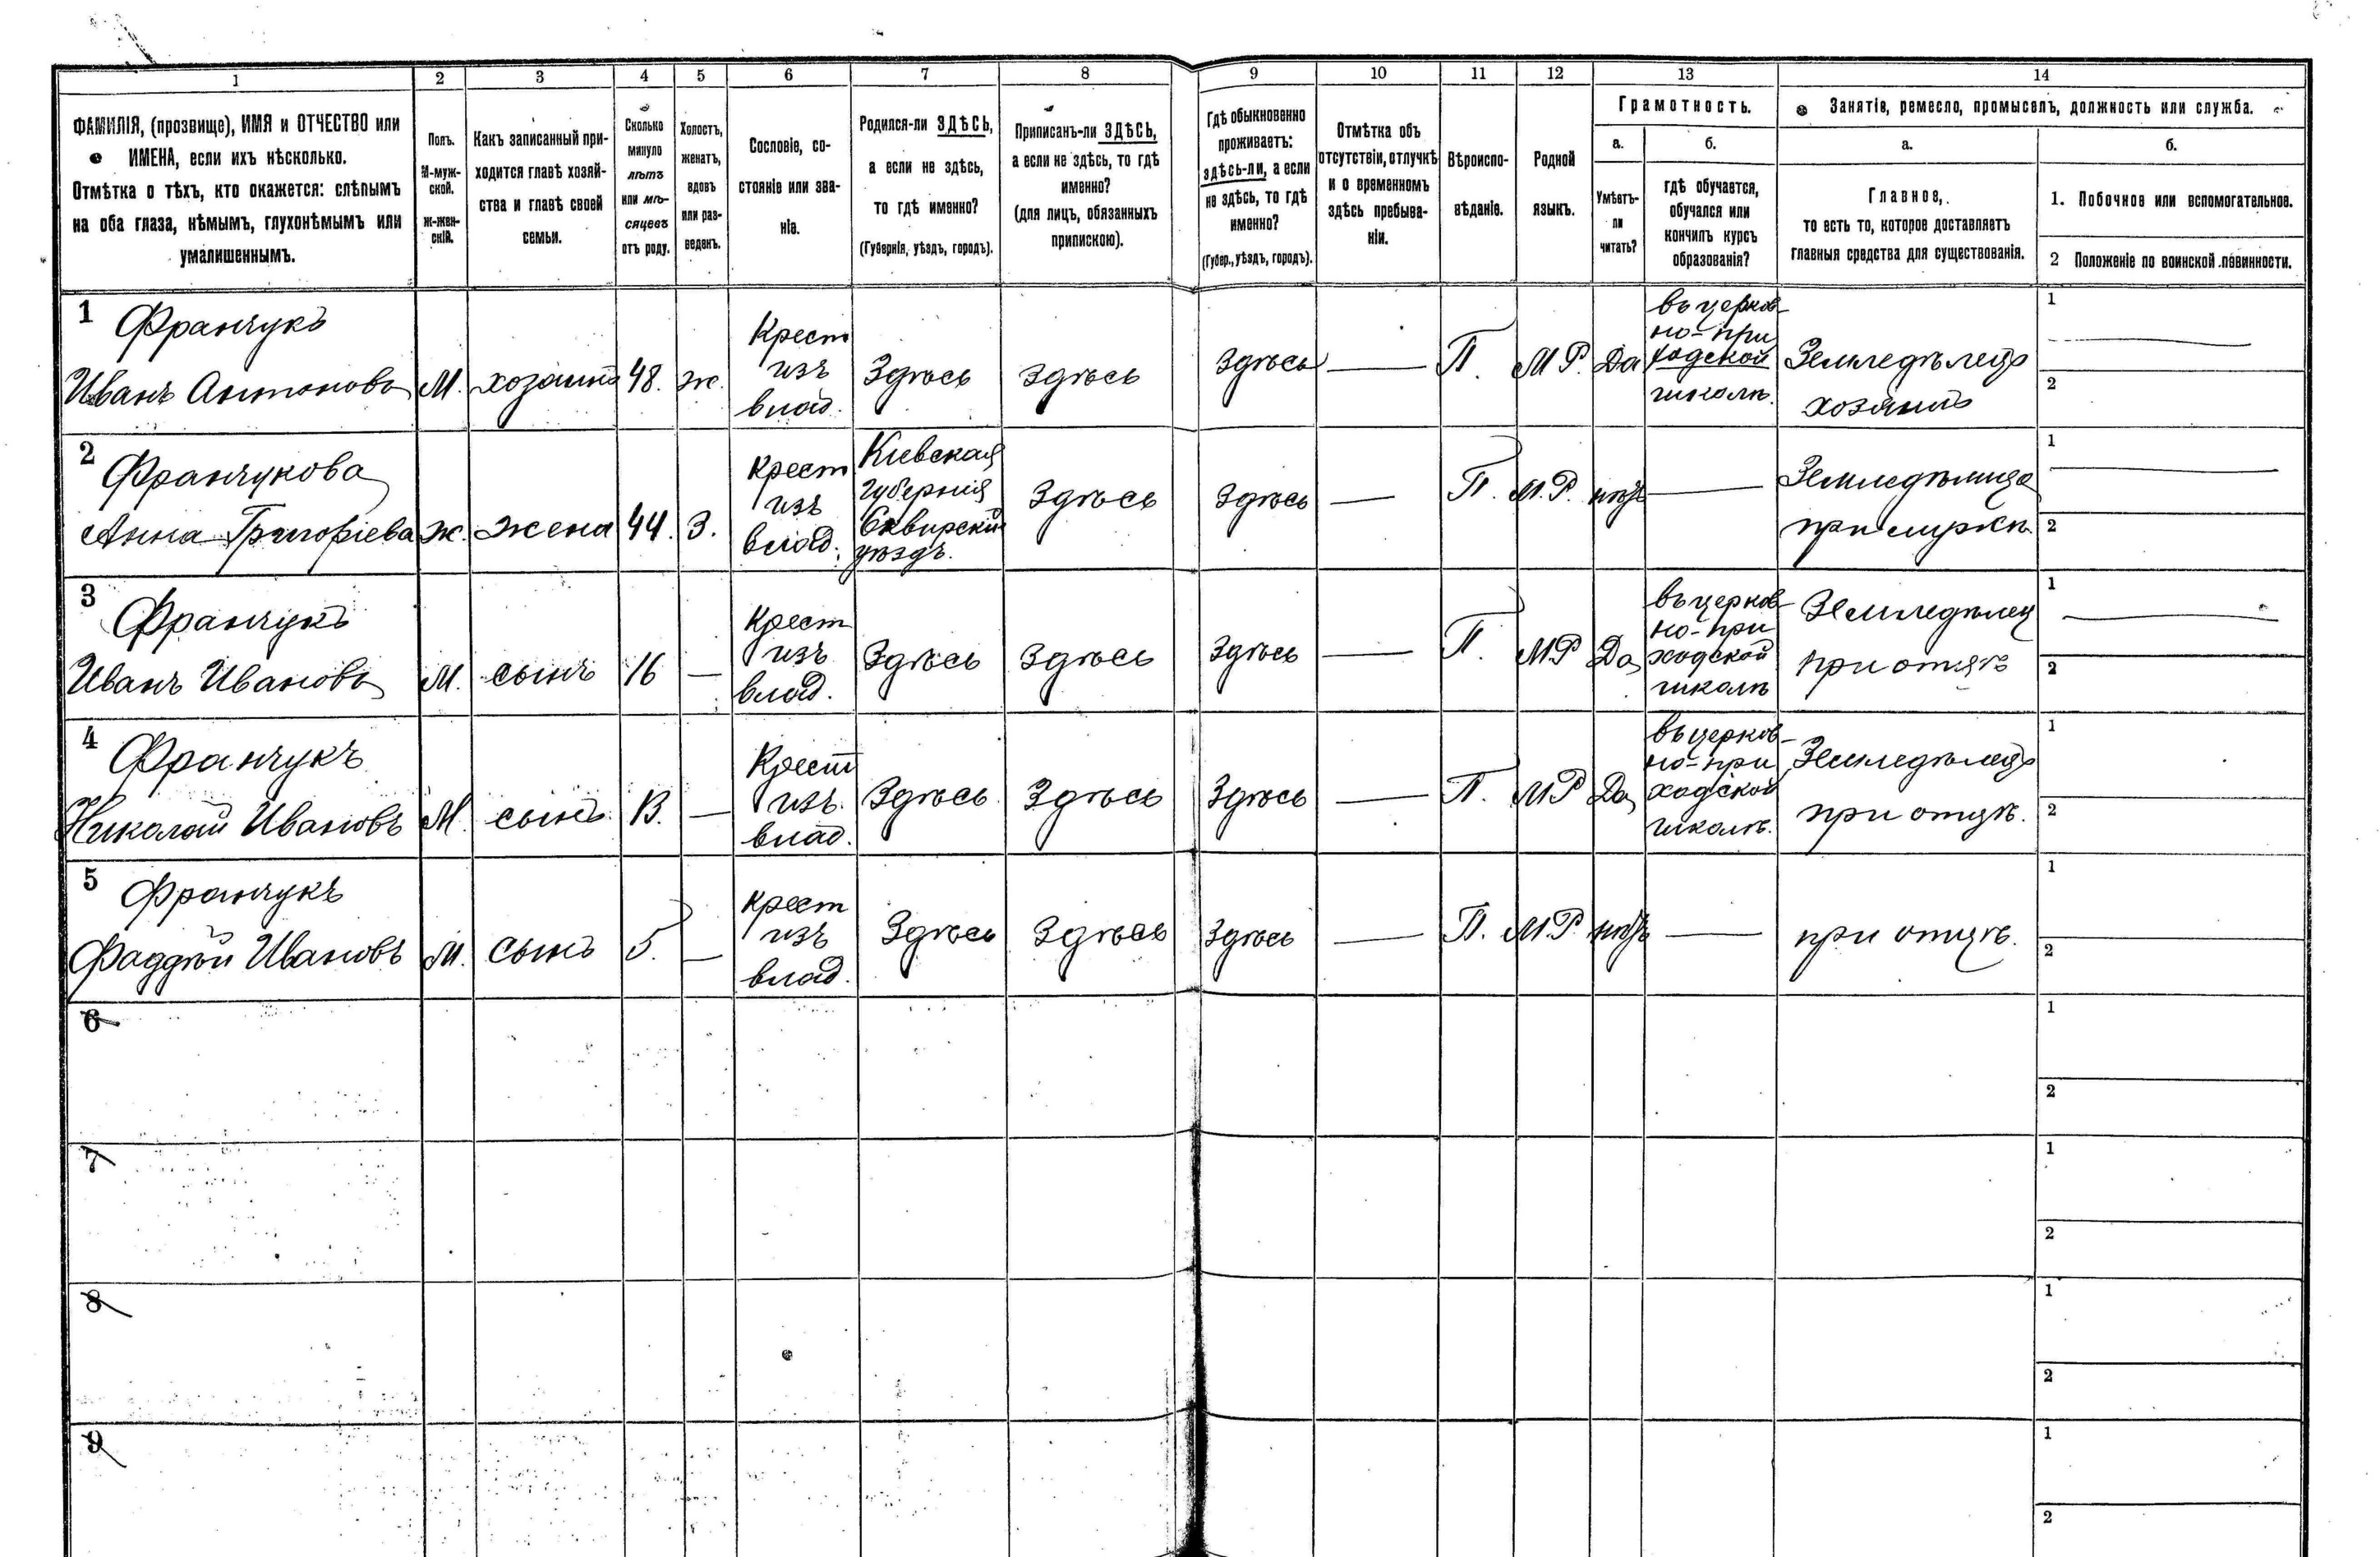 1 2 3 4 5 6 7 8 9 10 11 12 13 14
ФАМИЛІЯ, (прозвище), ИМЯ и ОТЧЕСТВО или
ИМЕНА, если ихъ нѣсколько.
Отмѣтка о тѣхъ, кто окажется: слѣпымъ
на оба глаза, нѣмымъ, глухонѣмымъ или
умалишеннымъ.
Полъ.
М-муж-
ской.
ж-жен-
скій.
Какъ записанный при-
ходится главѣ хозяй-
ства и главѣ своей
семьи.
Сколько
минуло
лѣтъ
или мѣ-
сяцевъ
отъ роду.
Холостъ,
женатъ,
вдовъ
или раз-
веденъ.
Сословіе, со-
стояніе или зва-
ніе.
Родился-ли ЗДѢСЬ,
а если не здѣсь,
то гдѣ именно?
(Губернія, уѣздъ, городъ).
Приписанъ-ли ЗДѢСЬ,
а если не здѣсь, то гдѣ
именно?
(для лицъ, обязанныхъ
припискою).
Гдѣ обыкновенно
проживаетъ:
здѣсь-ли, а если
не здѣсь, то гдѣ
именно?
(Губер., уѣздъ, городъ).
Отмѣтка объ
отсутствіи, отлучкѣ
и о временномъ
здѣсь пребыва-
ніи.
Вѣроиспо-
вѣданіе.
Родной
языкъ.
Грамотность.
а.
Умѣетъ-
ли
читать?
б.
гдѣ обучается,
обучался или
кончилъ курсъ
образованія?
Занятіе, ремесло, промыселъ, должность или служба.
а.
Главное,
то есть то, которое доставляетъ
главныя средства для существованія.
б.
1. Побочное или вспомогательное.
2 Положеніе по воинской повинности.
1
Франчукъ
Иванъ Антоновъ
М.
хозяинъ
48.
ж.
Крест
изъ
влад.
Здѣсь
Здѣсь
Здѣсь
—
П.
М Р.
Да
въ церков-
но-при
ходской
школѣ.
Земледѣлецъ
хозяинъ
1
2
2
Франчукова
Анна Григоріева
ж.
жена
44.
З.
Крест
изъ
влад.
Кіевская
губернія
Сквирскій
уѣздъ.
Здѣсь
Здѣсь
—
П.
М.Р.
нѣтъ
—
Земледѣлица
при мужѣ.
1
2
3
Франчукъ
Иванъ Ивановъ
М.
сынъ
16
—
Крест
изъ
влад.
Здѣсь
Здѣсь
Здѣсь
—
П.
МР
Да
въ церков-
но-при
ходской
школѣ
Земледѣлец
при отцѣ
1
2
4
Франчукъ
Николай Ивановъ
М.
сынъ
13.
—
Крест
изъ
влад.
Здѣсь
Здѣсь
Здѣсь
—
П.
МР
Да
въ церков-
но-при
ходской
школѣ.
Земледѣлецъ
при отцѣ.
1
2
5
Франчукъ
Фаддѣй Ивановъ
М.
сынъ
5.
—
Крест
изъ
влад.
Здѣсь
Здѣсь
Здѣсь
—
П.
М.Р.
нѣтъ
—
при отцѣ.
1
2
6
1
2
7
1
2
8
1
2
9
1
2